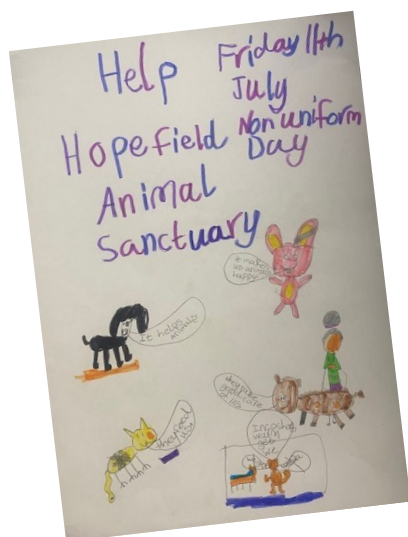 Help
Hopefield
Animal
Sanctuary
Friday 11th
July
Non uniform
Day
it makes
us animals
happy
It helps
animals
they take
good care
of us
they feed
us